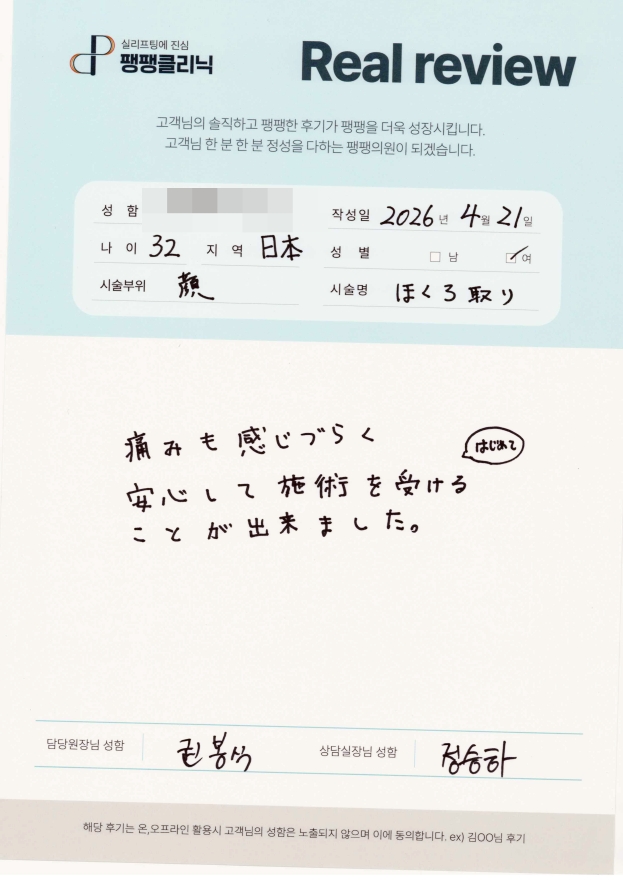 실리프팅에 진심
팽팽클리닉
Real review
고객님의 솔직하고 팽팽한 후기가 팽팽을 더욱 성장시킵니다.
고객님 한 분 한 분 정성을 다하는 팽팽의원이 되겠습니다.
성 함 작성일 2026년 4월 21일
나 이 32 지 역 日本 성 별 남 여
시술부위 顔 시술명 ほくろ取り
痛みも感じづらく
はじめて
安心して施術を受ける
ことが出来ました。
담당원장님 성함 권봉식 상담실장님 성함 정승하
해당 후기는 온,오프라인 활용시 고객님의 성함은 노출되지 않으며 이에 동의합니다. ex) 김OO님 후기